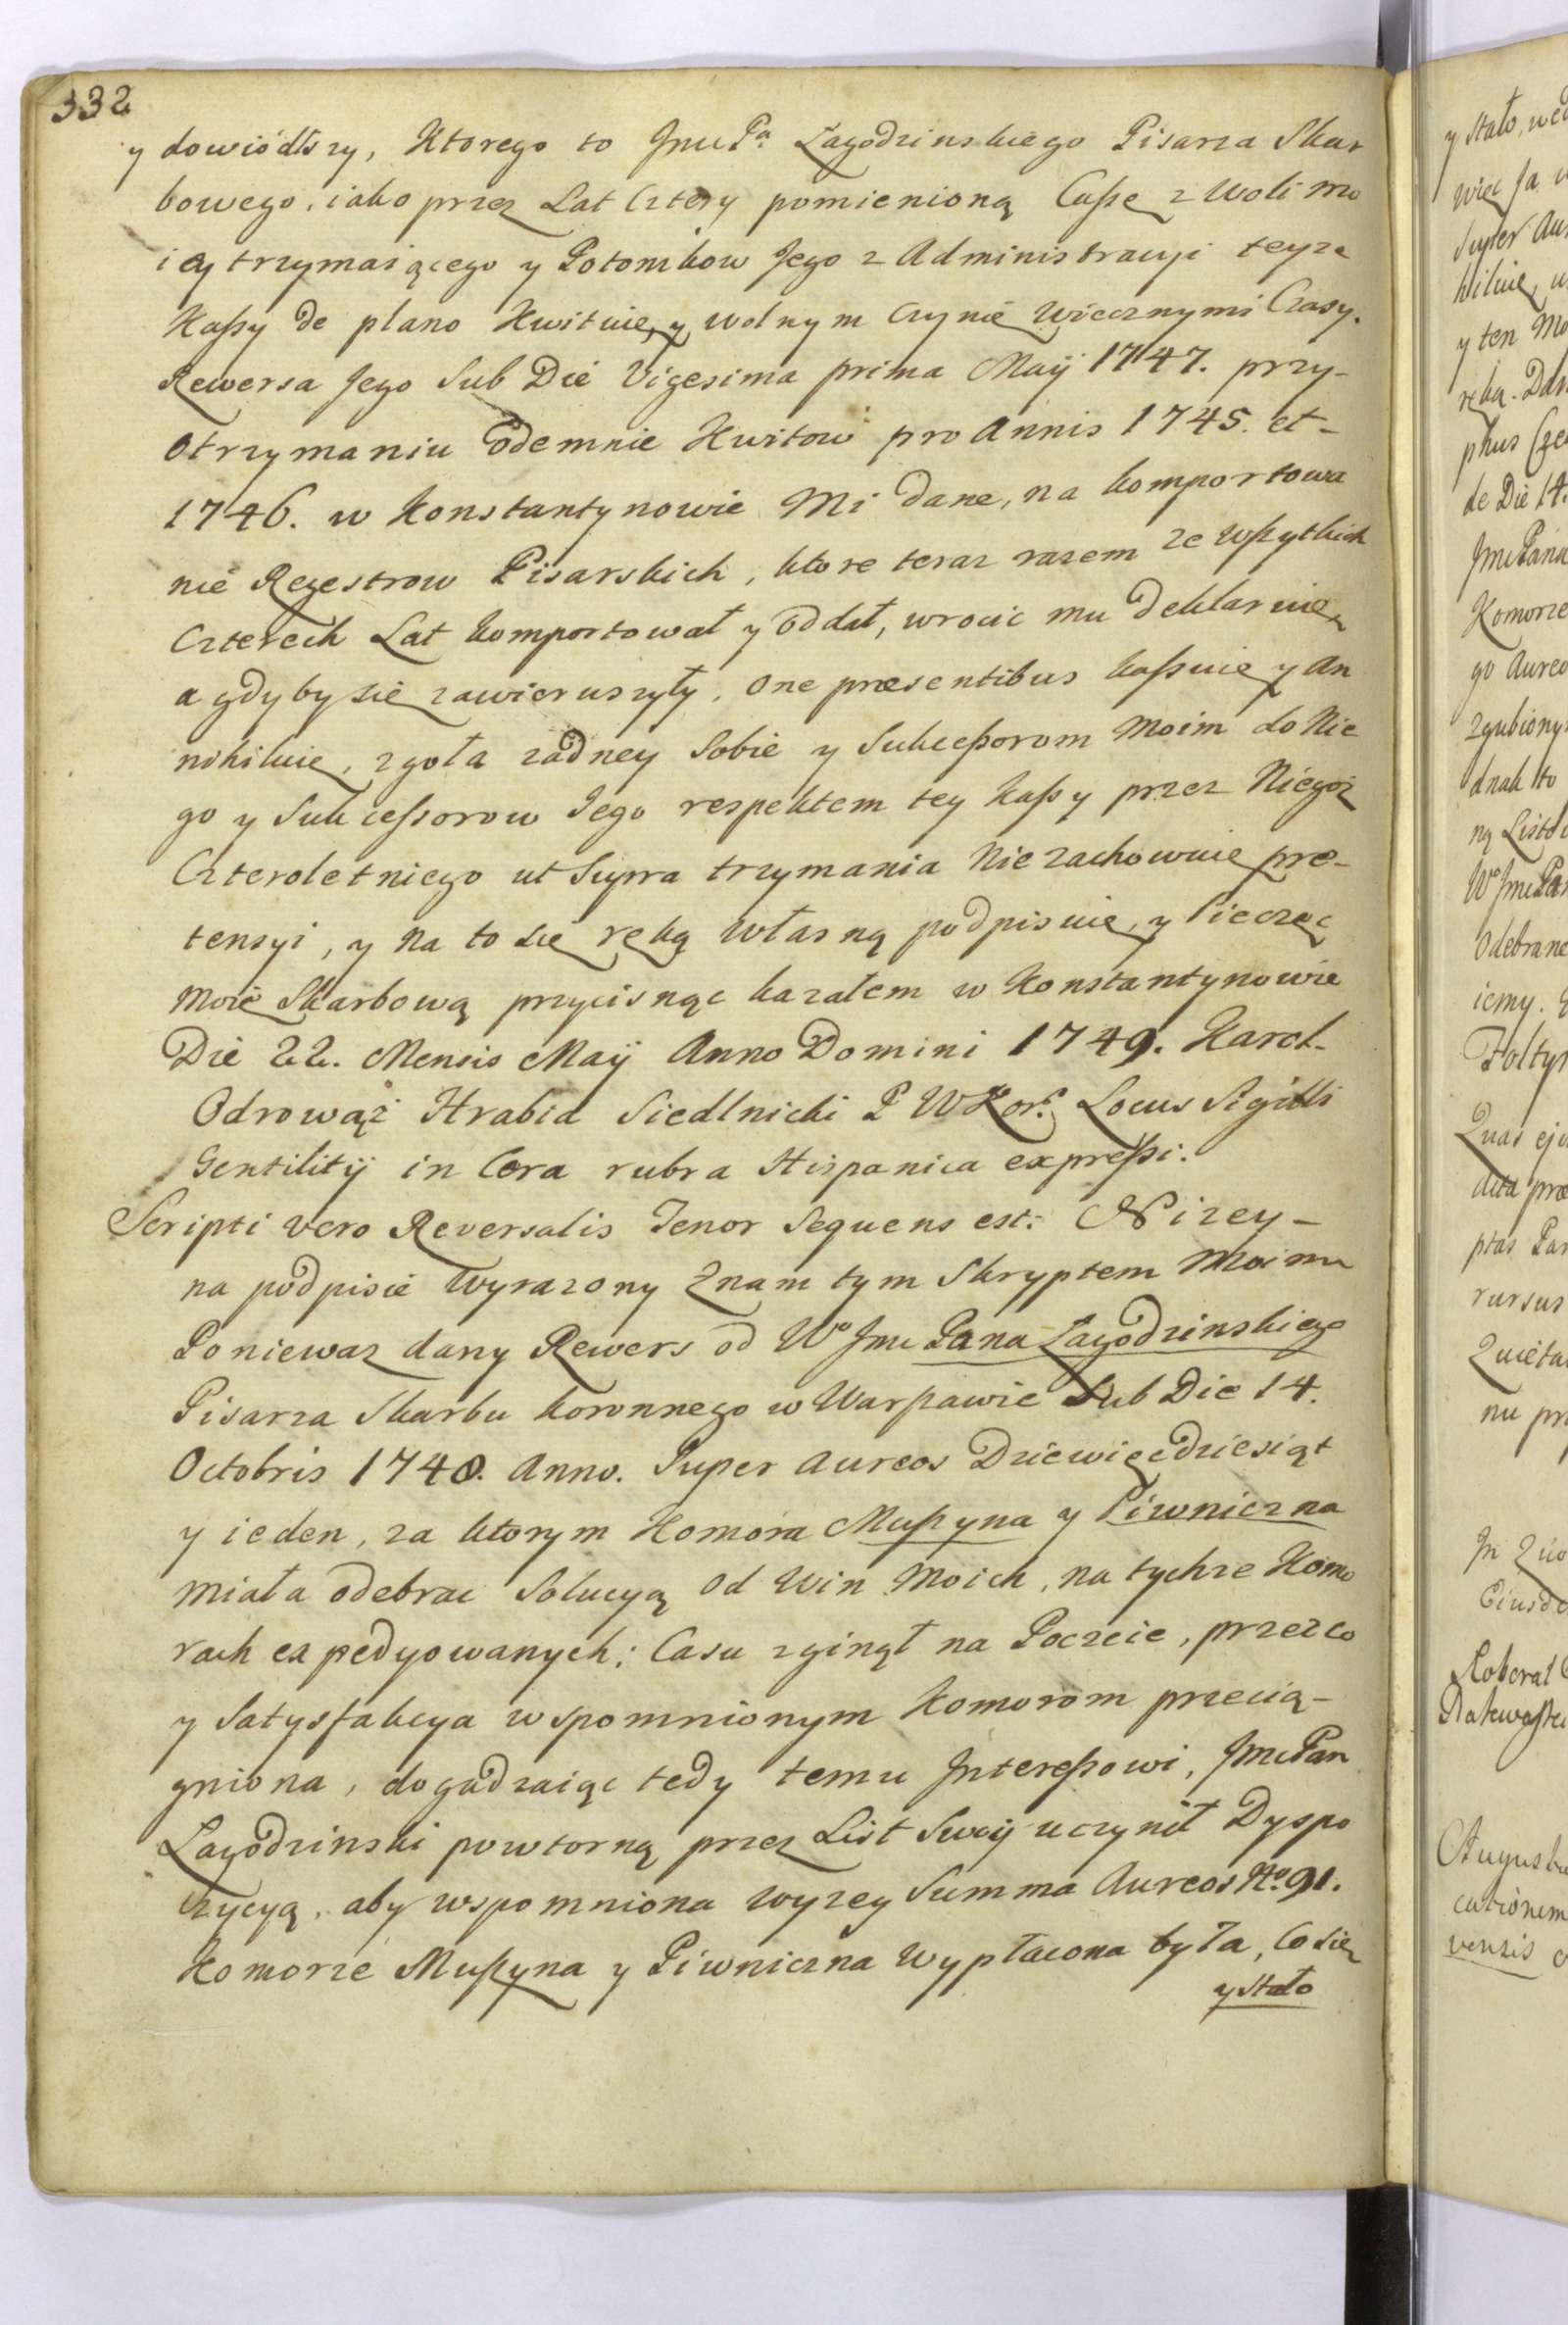 332
y dowiódłszy, Ktorego to Jmci Pa Łagodzinskiego Pisarza Skar
bowego, iako przez Lat Cztery pomienioną Cassę z Woli mo
iey trzymaiącego y Potomkow Jego z Administracyi teyze
Kassy de plano Kwituię, y wolnym Czynię wiecznymi Czasy.
Rewersa Jego Sub Die Vigesima prima Maÿ 1747. przy-
otrzymaniu odemnie Kwitow pro Annis 1745. et-
1746. w Konstantynowie Mi dane, na komportowa
nie Regestrow Pisarskich, ktore teraz razem ze wszytkich
Czterech Lat komportował y oddał, wrocic mu deklaruię
a gdyby się zawieruszyły, one præsentibus kassuię y An
nihiluię, zgoła zadney Sobie y Sukcessorom Moim do Nie
go y Sukcessorow Jego respektem tey kassy przez Niegoz
Czteroletniego ut Supra trzymania Nie zachowuię pre-
tensyi, y na to się ręką własną podpisuię, y Pieczęc
moię Skarbową przycisnąc kazałem w Konstantynowie
Die 22. Mensis Maÿ Anno Domini 1749. Karol-
Odrowąż Hrabia Siedlnicki P W Kor: Locus Sigilli
Gentilitÿ in Cera rubra Hispanica expressi.
Scripti vero Reversalis Tenor Sequens est: Nizey-
na podpisie wyrazony Znam tym Skryptem Moim
Poniewaz dany Rewers od Wo Jmc Pana Łagodzinskiego
Pisarza Skarbu koronnego w Warszawie Sub Die 14.
Octobris 1748. Anno. Super Aureos Dziewięcdziesiąt
y ieden, za ktorym Komora Muszyna y Piwniczna
miała odebrac Solucyą od Win Moich, na tychze Komo
rach expedyowanych; Casu zginął na Poczcie, przezco
y Satysfakcya wspomnionym Komorom przecią-
gniona, dogadzaiąc tedy temu Interessowi, Jmc Pan
Łagodzinski powtorną przez List Swoÿ uczynił Dyspo
zycyą, aby wspomniona wyzey Summa Aureos No 91.
Komorze Muszyna y Piwniczna wypłacona była, Co się
y Stało
y Stało,
więc Ja
Super
y ten
phus
de Die 14.
Jmc Pana
Komorze
go Aureo
zgubiony
dnak to
Odebrane
iemy.
ptas
rursus